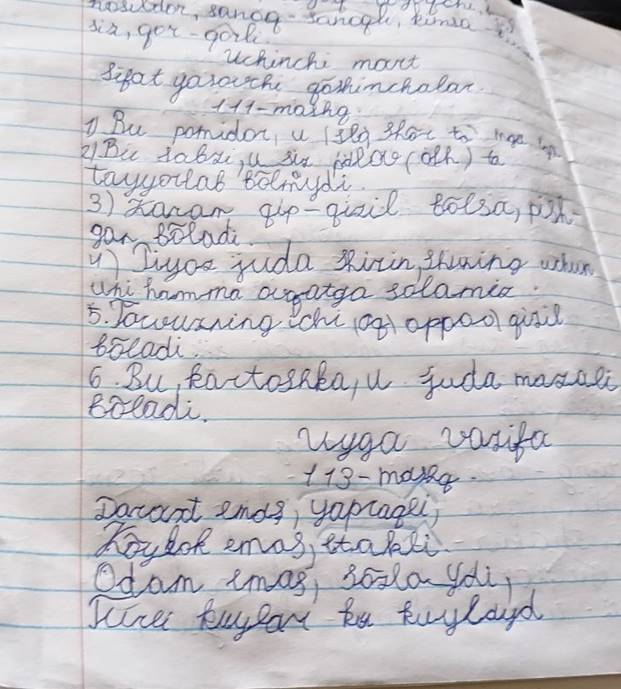 hosildor, sanoq-sanoqli, kimsa-
siz, qor-qorli
Uchinchi mart
Sifat yasovchi qoshimchalar.
111-mashq.
1) Bu pomidor, u
2) Bu sabzi, u siz palov (osh) ta
tayyorlab bolmydi.
3) Karam qip-qizil bolsa, pish-
gan boladi.
4) Piyoz juda shirin, shuning uchun
uni hamma ovqatga solamiz.
5. Tarvuzning ichi (oq) oppoq qizil
boladi.
6. Bu kartoshka, u juda mazali
boladi.
Uyga vazifa
113-mashq.
Daraxt emas, yapraqli,
Koylok emas, etakli.
Odam emas, sozlaydi,
kuylar ku kuylayd